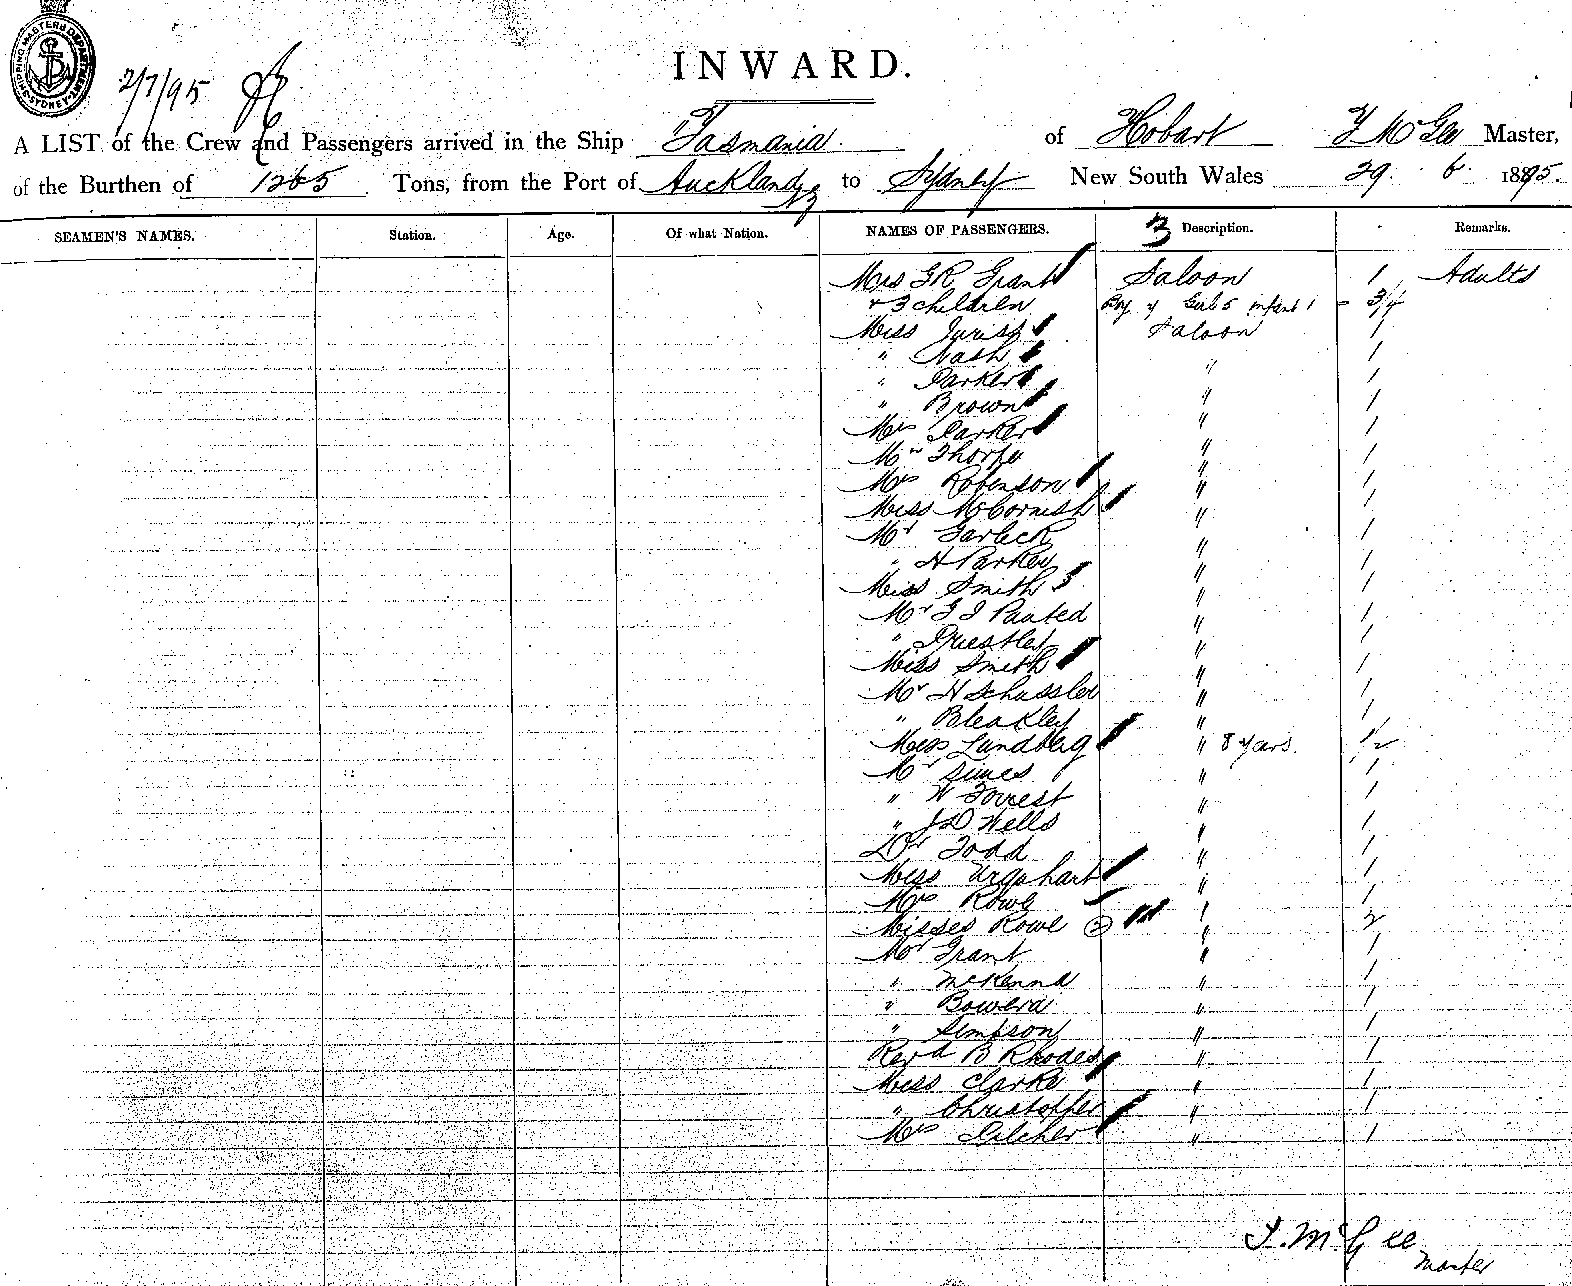 SHIPPING MASTERS DEPARTMENT SYDNEY
2/7/95
INWARD.
A LIST of the Crew and Passengers arrived in the Ship Tasmania of Hobart T McGee Master,
of the Burthen of 1265 Tons, from the Port of Auckland NZ to Sydney New South Wales 29. 6. 1895.
SEAMEN'S NAMES. Station. Age. Of what Nation. NAMES OF PASSENGERS. 3 Description. Remarks.
Mrs G R Grant Saloon 1 Adults
+ 3 children Boy 4 Girl 5 infant 1 - 3/4
Miss Saloon 1
" Nash " 1
" Parker " 1
" Brown " 1
Mrs Parker " 1
Mr Thorpe " 1
Mrs Robinson " 1
Miss McCornish " 1
Mr Garlick " 1
" H Parker " 1
Miss Smith " 1
Mr " 1
" Priestley " 1
Miss Smith " 1
Mr H Schussler " 1
" Bleakley " 1
Miss Lundberg " 8 years. 1/2
Mr " 1
" W Forrest " 1
" J D Wells " 1
Dr Todd " 1
Miss Urquhart " 1
Mrs Rowe " 1
Misses Rowe (2) " 2
Mr Grant " 1
" McKenna " 1
" " 1
" Simpson " 1
Revd B Rhodes " 1
Miss Clarke " 1
" Christopher " 1
Mrs Pilcher " 1
T. McGee
Master